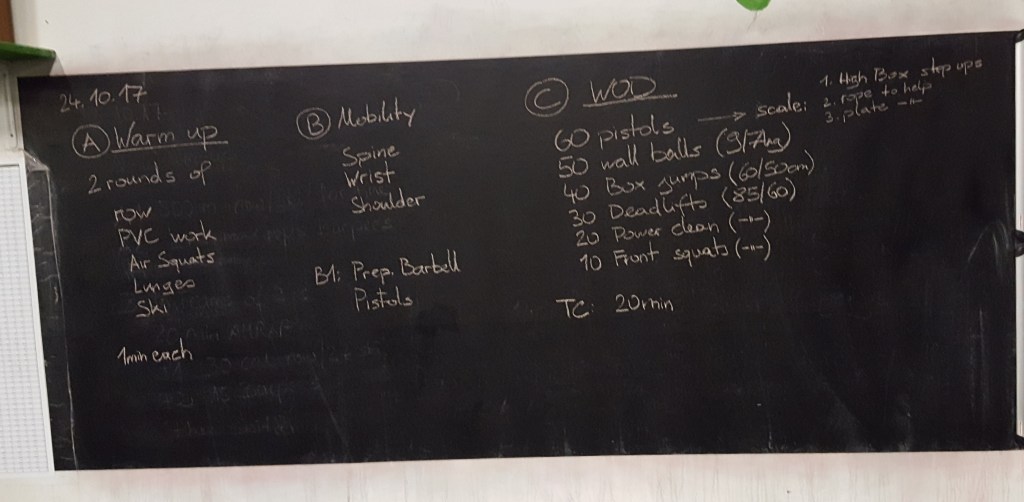 24.10.17
Ⓐ Warm up
2 rounds of
row
PVC work
Air Squats
Lunges
Ski
1min each
Ⓑ Mobility
Spine
Wrist
Shoulder
B1: Prep. Barbell
Pistols
Ⓒ WOD
60 pistols → scale: 1. High Box step ups
2. rope to help
3. plate -"-
50 wall balls (9/7kg)
40 Box jumps (60/50cm)
30 Deadlifts (85/60)
20 Power clean (-"-)
10 Front squats (-"-)
TC: 20min